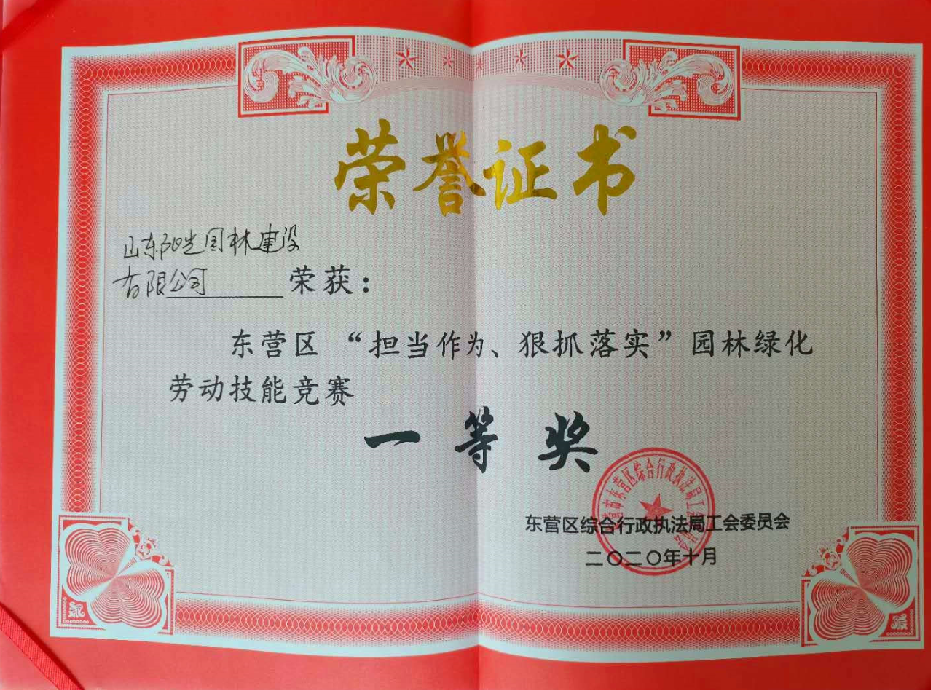 荣誉证书
山东阳光园林建设
有限公司 荣获：
东营区“担当作为、狠抓落实”园林绿化
劳动技能竞赛
一等奖
东营区综合行政执法局工会委员会
二〇二〇年十月